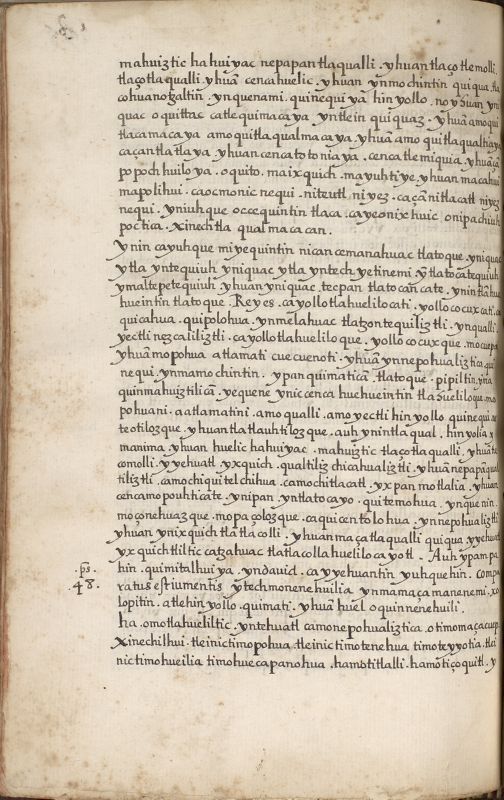 mahuiztic hahuiyac nepapan tlaqualli . yhuan tlaço tlemolli
tlaçotla qualli . yhuã cenca huelic . yhuan ynmochintin quiqua . tla
cohuanotzaltin . ynquenami . quinequi yã hin yollo . no yhuan yni
quac oquittac catlequimacaya yntlein quiquaz . yhuã amo qui
tlacamacaya amo quitlaqualmacaya . yhuã amo quitlaqualtiaya
caçan tlatlaya . yhuan cencatotoniaya . cencatlemiquia . yhuã çã
popochhuiloya . oquito . maixquich . mayuhtiye . yhuan macahui
mapolihui . caocmonic nequi . niteutl niyez . caçã nitlacatl niyez
nequi . yniuhque occequintin tlaca . cayeonixhuic onipachiuh
poctica . xinechtla qualmacacan .
ynin cayuhque miyequintin nican cemanahuac tlatoque . yniquac
ytla yntequiuh yniquac ytla yntech yetinemi ỹ tlatocatequiuh
ynaltepetequiuh . yhuan yniquac . tecpan tlatocancate . ynintlãhui
hueintin tlatoque . Reyes . cayollotlahuelilocati . yollococuxcati . ca
quicahua . quipolohua . ynmelahuac tlatzontequiliztli . ynqualli .
yectli nezcaliliztli . cayollotlahueliloque . yollococuxque . mocuepa
yhuã mopohua atlamati cuecuenoti . yhuã ynnepohualiztica . qui
nequi . ynmamochintin . ypanquimaticã . tlatoque . pipiltin . yna
quinmahuiztilicã . yequene ynic cenca huehueintin tlahueliloque . mo
pohuani . aatlamatini . amo qualli . amo yectli hin yollo . quinequi . xo
teotilozque . yhuan tlatlauhtilozque . auh ynintlaqual . hin yolia y
manima . yhuan huelic hahuiyac . mahuiztic tlaçotlaqualli . yhuã tle
comolli . yyehuatl yxquich . qualtiliz chicahualiztli . yhuã nepapã qual
tiliztli . camochi quitelchihua . camochitlacatl . yxpan motlalia . yhuan
cencamo pouhticate . ynipan . yntlatocayo . quitemohua . ynquenin .
moçonehuazque . mopaçolozque . caquicentolohua . ynnepohualiztli
yhuan ynixquich tlatlacolli . yhuan maçatlaqualli quiqua . yyehuatl
yxquich tliltic catzahuac tlatlacollahuelilocayotl . Auh ypampa
hin . quimitalhuiya . yn dauid . ca yyehuantin yuhquehin . Compa
.ps.
.48.
ratus est iumentis ytech monenehuilia ynmamaça manenemi . xo
lopitin . atle hin yollo . quimati . yhuã huel oquinnenehuili .
ha . omotlahueliltic . yntehuatl camonepohualiztica . otimomaçacuep
Xinechilhui . tleinic timopohua . tleinic timotenehua timoteyyotia . tlei
nictimohueilia timohuecapanohua . hamo titlalli . hamo tiçoquitl . y